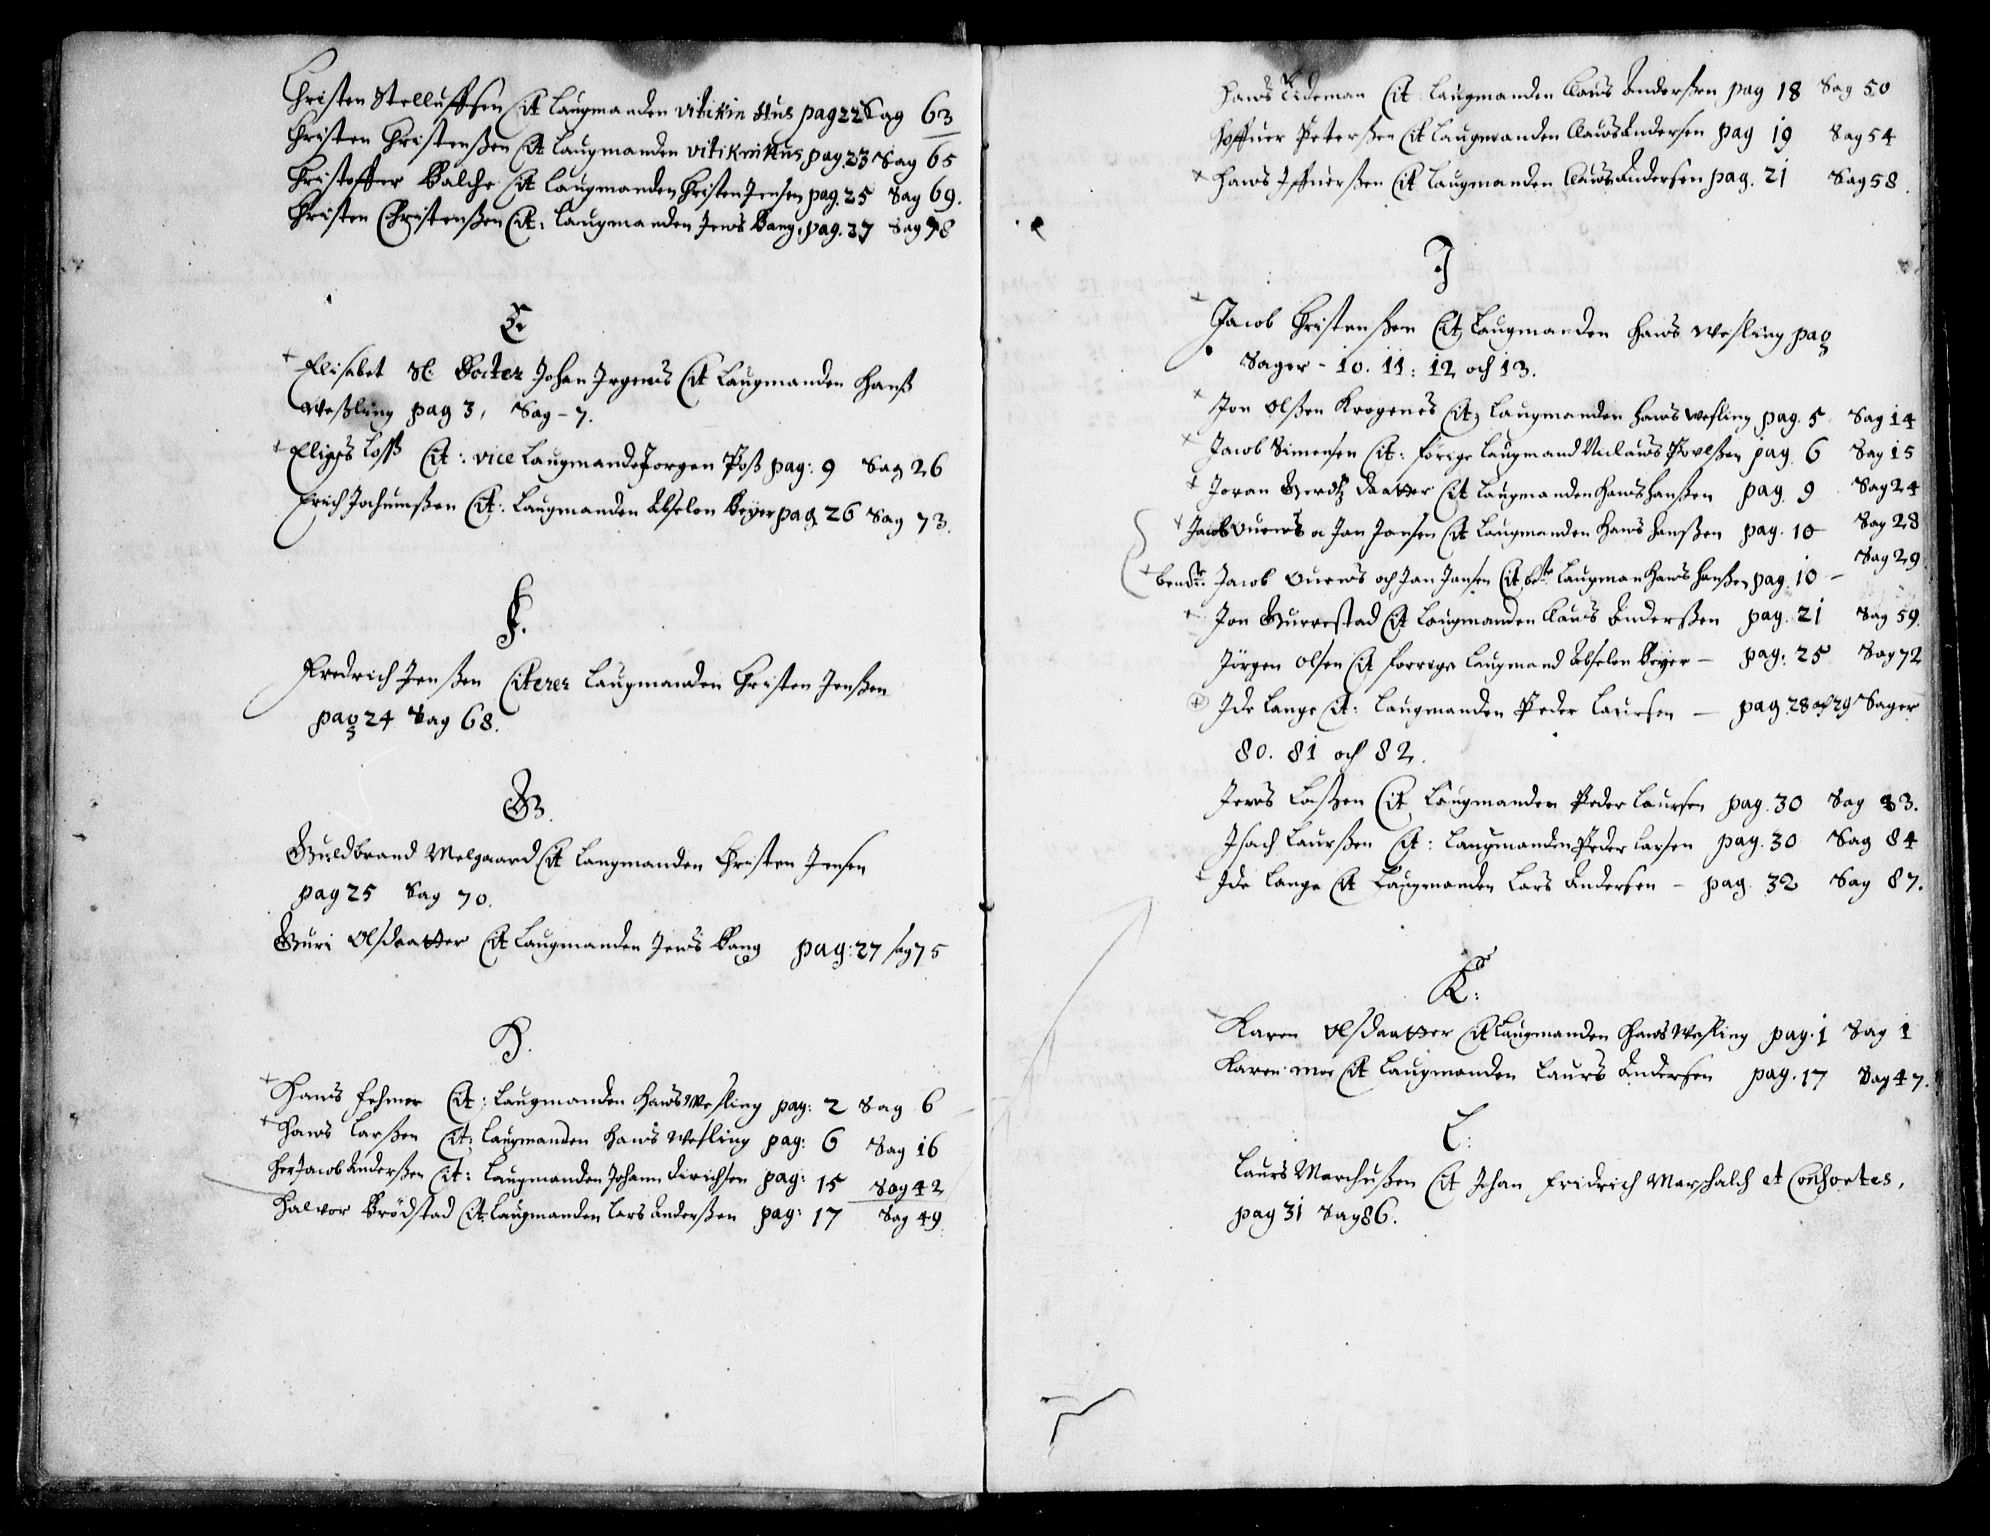 Christen Stelluffsen Cit Laugmanden Vitikin Hus pag 22 Sag 63
Christen Christenßen Cit Laugmanden Vitikin Hus pag. 23 Sag 65
Christoffer Balche Cit Laugmanden Christen Jensen pag. 25 Sag 69.
Christen Christenßen Cit: Laugmanden Jens Bang, pag. 37 Sag 98
E
+ Elisabet Sl: Docter Johan Irgens Cit Laugmanden Hanß
Weßling pag 3, Sag - 7.
+ Loss Cit: vice Laugmand Jorgen Poß pag: 9 Sag 26
Erich Jochumßen Cit: Laugmanden Abselon Beyer pag 26 Sag 73.
F.
Fredrich Jenßen Citerer Laugmanden Christen Jenßen
pag 24 Sag 68.
G.
Guldbrand Melgaard Cit Laugmanden Christen Jensen
pag 25 Sag 70.
Guri Olsdaatter Cit Laugmanden Jens Bang pag: 27 sag 75
H.
+ Hans Fehmer Cit: Laugmanden Hans Wesling pag: 2 Sag 6
+ Hans Larßen Cit: Laugmanden Hans Wesling pag: 6 Sag 16
Her Jacob Anderßen Cit: Laugmanden Johann Dirichsen pag: 15 Sag 42
Halvor Brödstad Cit: Laugmanden Lars Anderßen pag: 17 Sag 49
Hans Tideman Cit Laugmanden Claus Anderßen pag 18 Sag 50
Peterßen Cit Laugmanden Claus Andersen pag 19 Sag 54
+ Hans Iffuerßen Cit Laugmanden Claus Andersen pag. 21 Sag 58.
J
+ Jacob Christenßen Cit Laugmanden Hans Wesling pag
Sager - 10. 11: 12 och 13.
+ Jon Olßen Krogenes Cit Laugmanden Hans Wesling pag. 5 Sag 14
+ Jacob Simensen Cit: forige Laugmand Niclaus Povlßen pag. 6 Sag 15
+ Joran Gerdtz Daatter Cit Laugmanden Hans Hanßen pag. 9 Sag 24
+ Jacob Ouens Jan Jansen Cit Laugmanden Hans Hanßen pag. 10 Sag 28
+ Jacob Ouens och Jan Jansen Cit Laugman Hans Hanßen pag. 10 - Sag 29
+ Jon Gurrestad Cit Laugmanden Claus Anderßen pag. 21 Sag 59.
Jörgen Olsen Cit forrige Laugmand Abselon Beyer - pag: 25 Sag 72
+ Ide Lange Cit: Laugmanden Peder Laursen - pag 28 och 29 Sager
80. 81 och 82.
Jens Laßen Cit Laugmanden Peder Laursen pag. 30 Sag 83.
Isach Laurßen Cit: Laugmanden Peder Larsen pag. 30 Sag 84
Ide Lange Cit Laugmanden Lars Andersen - pag. 32 Sag 87.
K:
Karen Olsdaatter Cit Laugmanden Hans Wesling pag. 1 Sag 1
Karen Moe Cit Laugmanden Laurs Andersen pag. 17 Sag 47.
L:
Laurs Marchußen Cit Johan Fridrich Marschalch et Consortes,
pag 31 Sag 86.